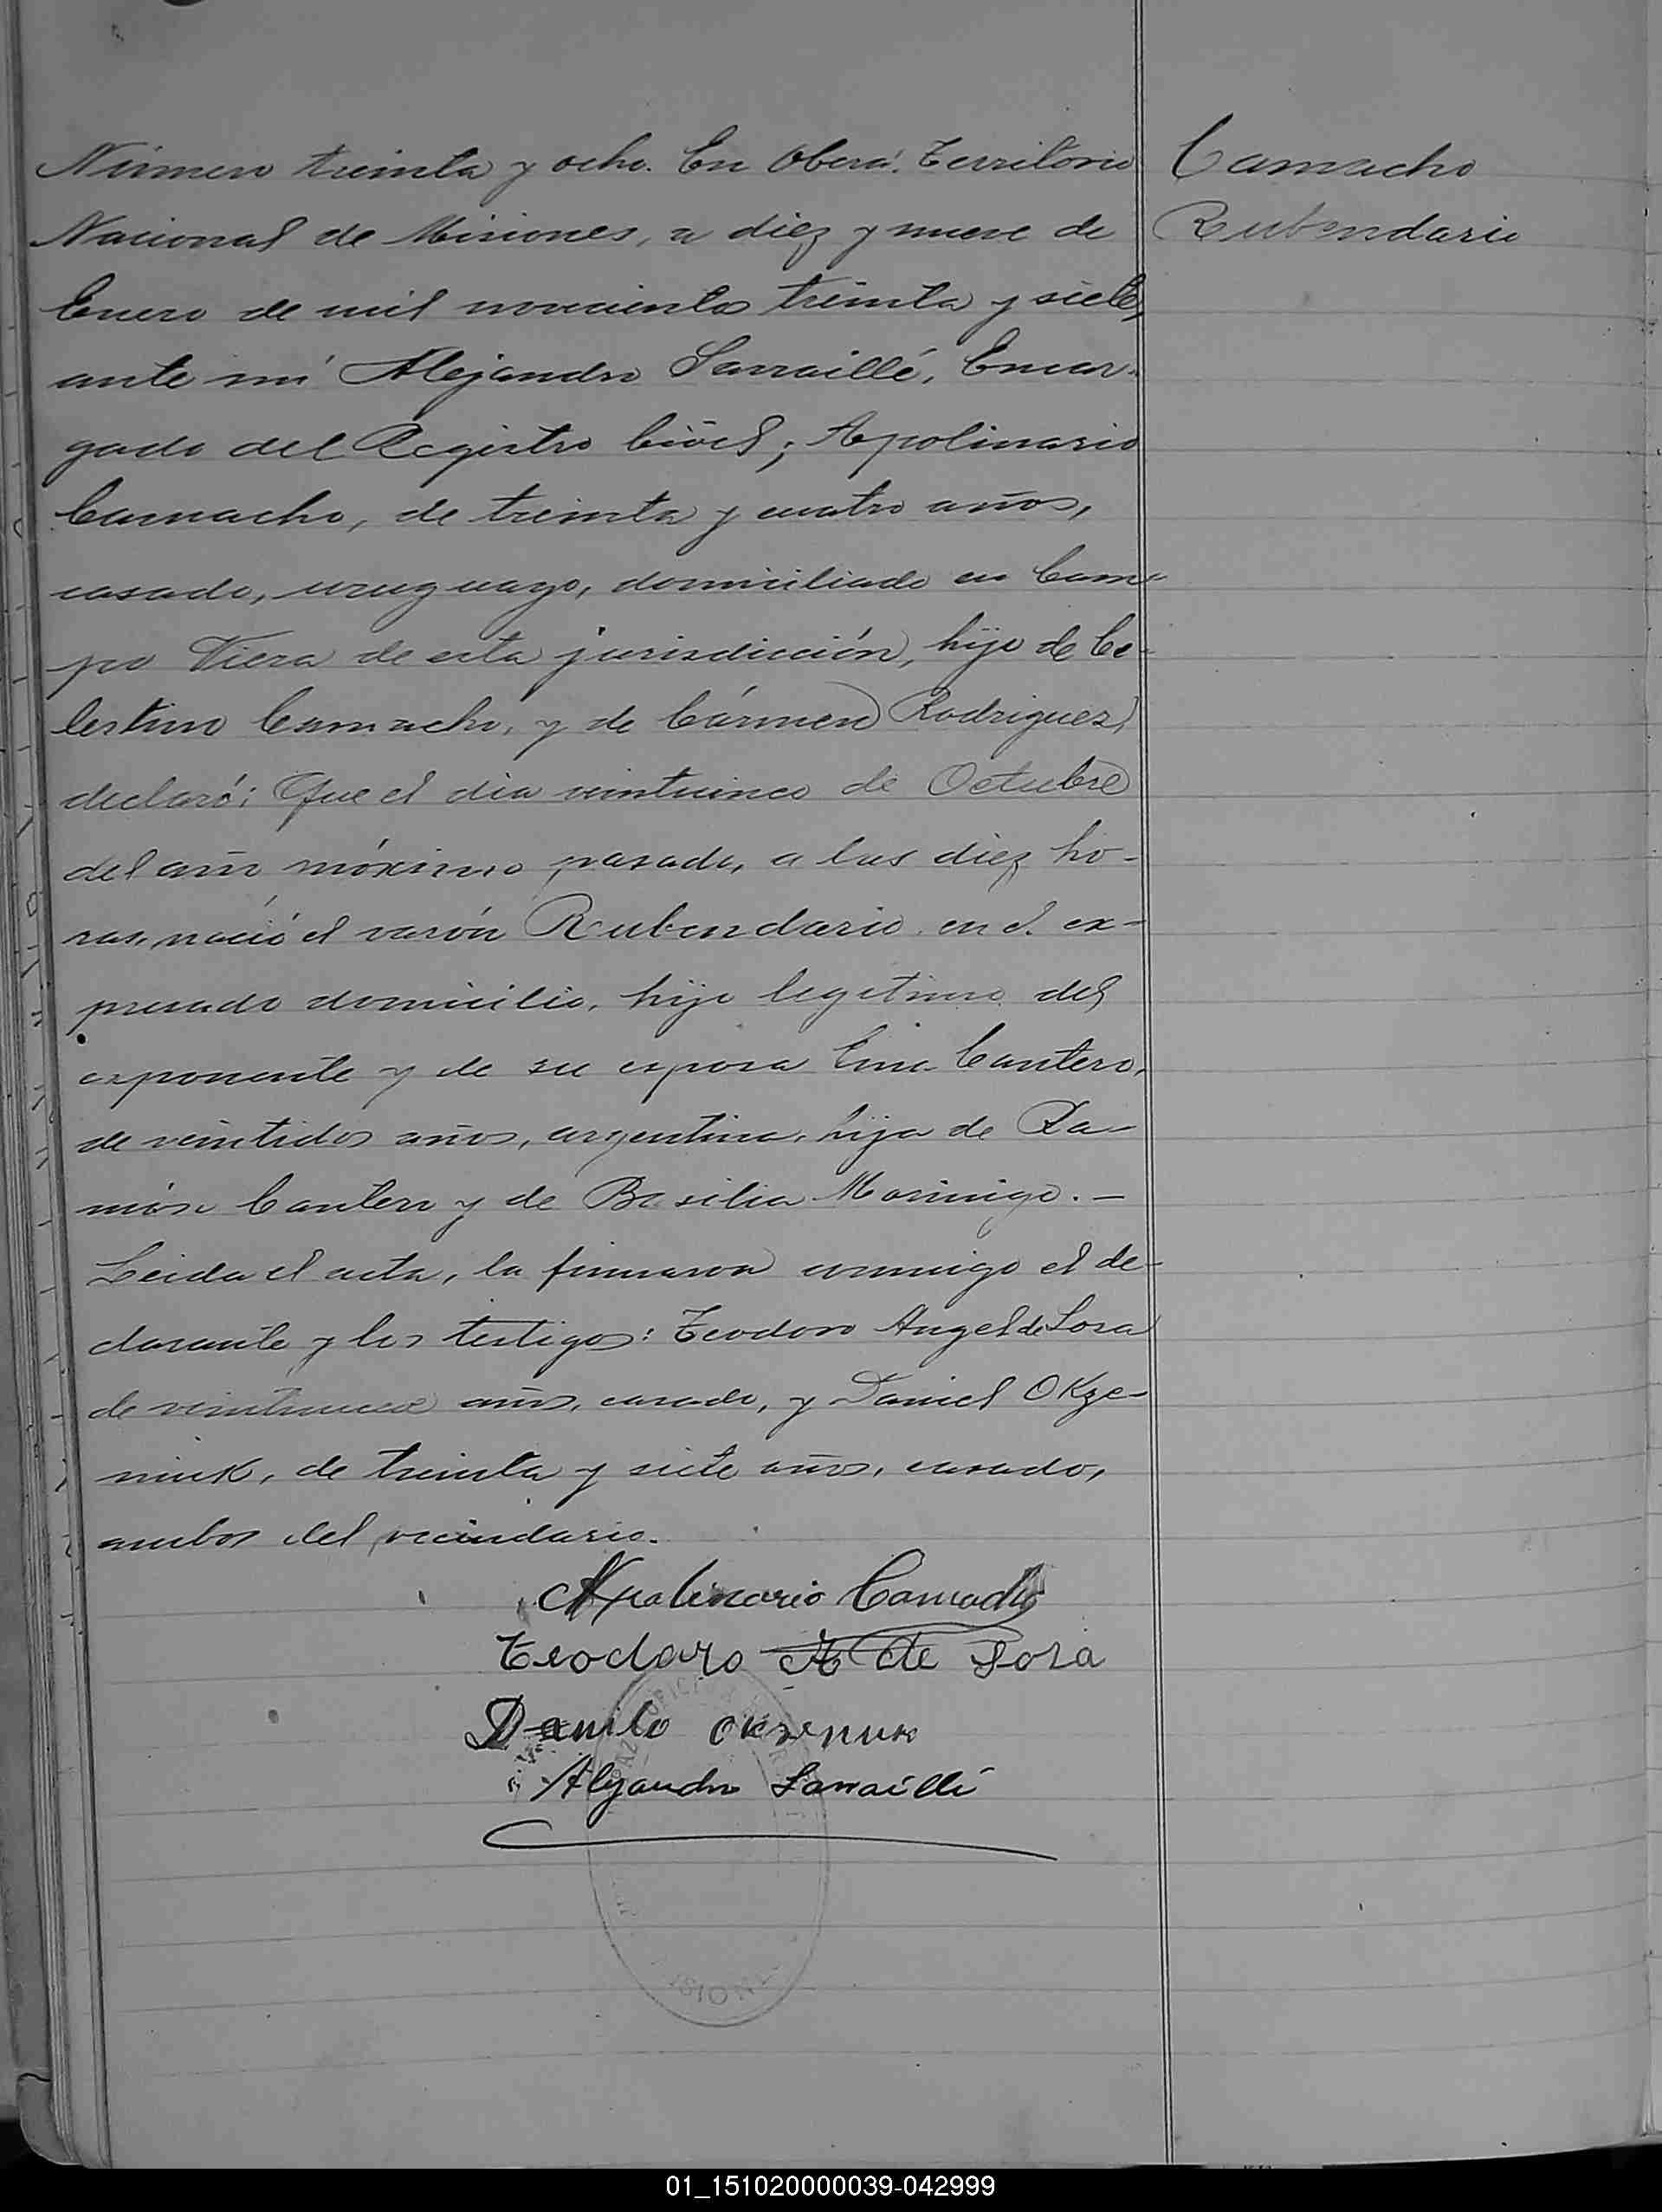 Camacho
Rubendario
Número treinta y ocho. En Oberá. Territorio
Nacional de Misiones, a diez y nueve de
Enero de mil novecientos treinta y siete,
ante mí Alejandro Sarraillé, Encar-
gado del Registro Civil; Apolinario
Camacho, de treinta y cuatro años,
casado, uruguayo, domiciliado en Cam-
po Viera de esta jurisdicción, hijo de Ce-
lestino Camacho, y de Cármen Rodriguez,
declaró: Que el dia veinticinco de Octubre
del año próximo pasado, a las diez ho-
ras, nació el varón Rubendario en el ex-
presado domicilio, hijo legitimo del
exponente y de su esposa Ema Cantero,
de veintidos años, argentina, hija de Ra-
món Cantero y de Basilia Morinigo. -
Leida el acta, la firmaron conmigo el de-
clarante y los testigos: Teodoro Angel de Sosa
de veintinueve años, casado, y Daniel Okze-
niuk, de treinta y siete años, casado,
ambos del vecindario.
Apolinario Camacho
Teodoro A de Sosa
Danilo
Alejandro Sarraillé
01_151020000039-042999